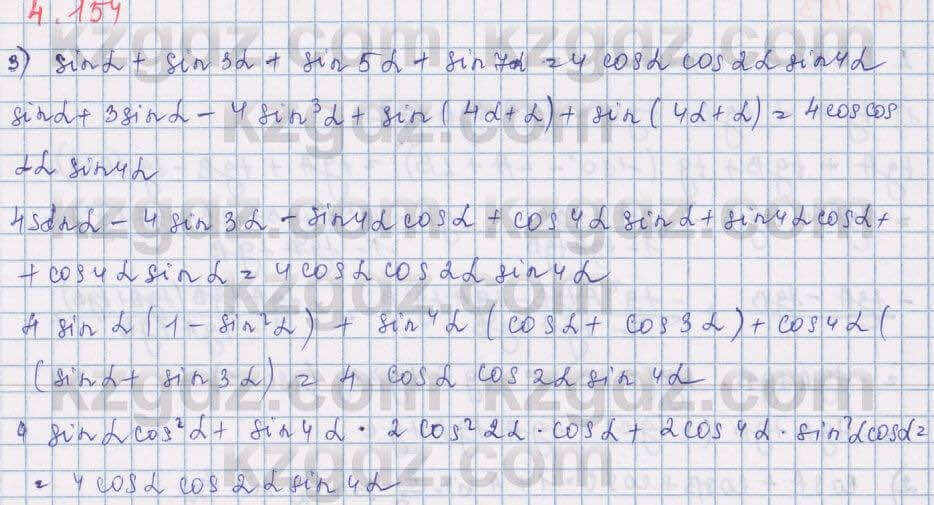 4.154
3) sinα + sin 3α + sin 5α + sin 7α = 4 cosα cos 2α sin 4α
sinα + 3 sinα - 4 sin³α + sin (4α + α) + sin (4α + α) = 4 cos cos
2α sin 4α
4 sinα - 4 sin 3α - sin 4α cosα + cos 4α sinα + sin 4α cosα +
+ cos 4α sinα = 4 cosα cos 2α sin 4α
4 sinα (1 - sin²α) + sin⁴α (cosα + cos 3α) + cos 4α (
(sinα + sin 3α) = 4 cosα cos 2α sin 4α
4 sinα cos²α + sin 4α · 2 cos² 2α · cosα + 2 cos 4α · sin²α cosα =
= 4 cosα cos 2α sin 4α
kzgdz.com